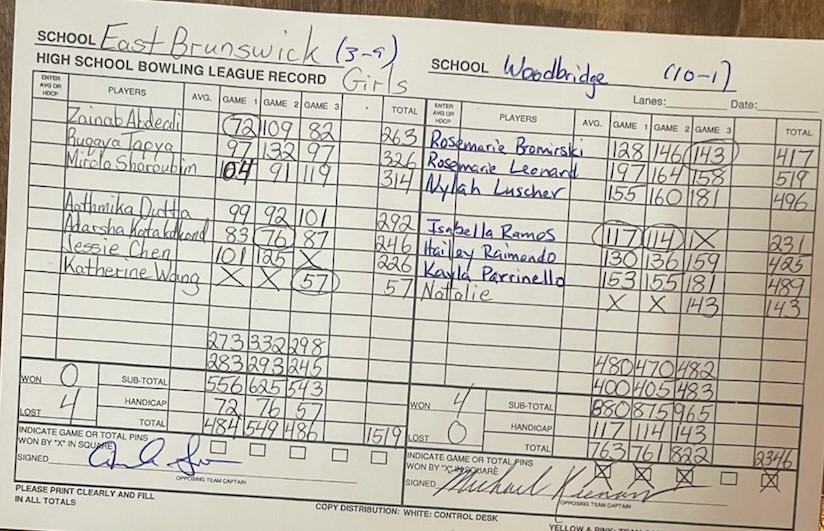 SCHOOL East Brunswick (3-9)
HIGH SCHOOL BOWLING LEAGUE RECORD Girls
ENTER AVG OR HDCP PLAYERS AVG. GAME 1 GAME 2 GAME 3 TOTAL
Zainab Abdeali 72 109 82 263
Ruqaya Tapya 97 132 97 326
Mirola Sharoubim 104 91 119 314
Aathmika Dutta 99 92 101 292
Adarsha 83 76 87 246
Jessie Chen 101 125 X 226
Katherine Wang X X 57 57
273 332 298
283 293 245
WON 0 SUB-TOTAL 556 625 543
LOST 4 HANDICAP 72 76 57
TOTAL 484 549 486 1519
INDICATE GAME OR TOTAL PINS
WON BY "X" IN SQUARE
SIGNED
OPPOSING TEAM CAPTAIN
PLEASE PRINT CLEARLY AND FILL
IN ALL TOTALS
SCHOOL Woodbridge (10-1)
Lanes: Date:
ENTER AVG OR HDCP PLAYERS AVG. GAME 1 GAME 2 GAME 3 TOTAL
Rosemarie Bromirski 128 146 143 417
Rosemarie Leonard 197 164 158 519
Nylah Luscher 155 160 181 496
Isabella Ramos 117 114 X 231
Hailey Raimondo 130 136 159 425
Kayla Parrinello 153 155 181 489
Natalie X X 143 143
480 470 482
400 405 483
WON 4 SUB-TOTAL 880 875 965
LOST 0 HANDICAP 117 114 143
TOTAL 763 761 822 2346
INDICATE GAME OR TOTAL PINS
WON BY "X" IN SQUARE X X X X
SIGNED Michael
OPPOSING TEAM CAPTAIN
COPY DISTRIBUTION: WHITE: CONTROL DESK
YELLOW & PINK: TEAM